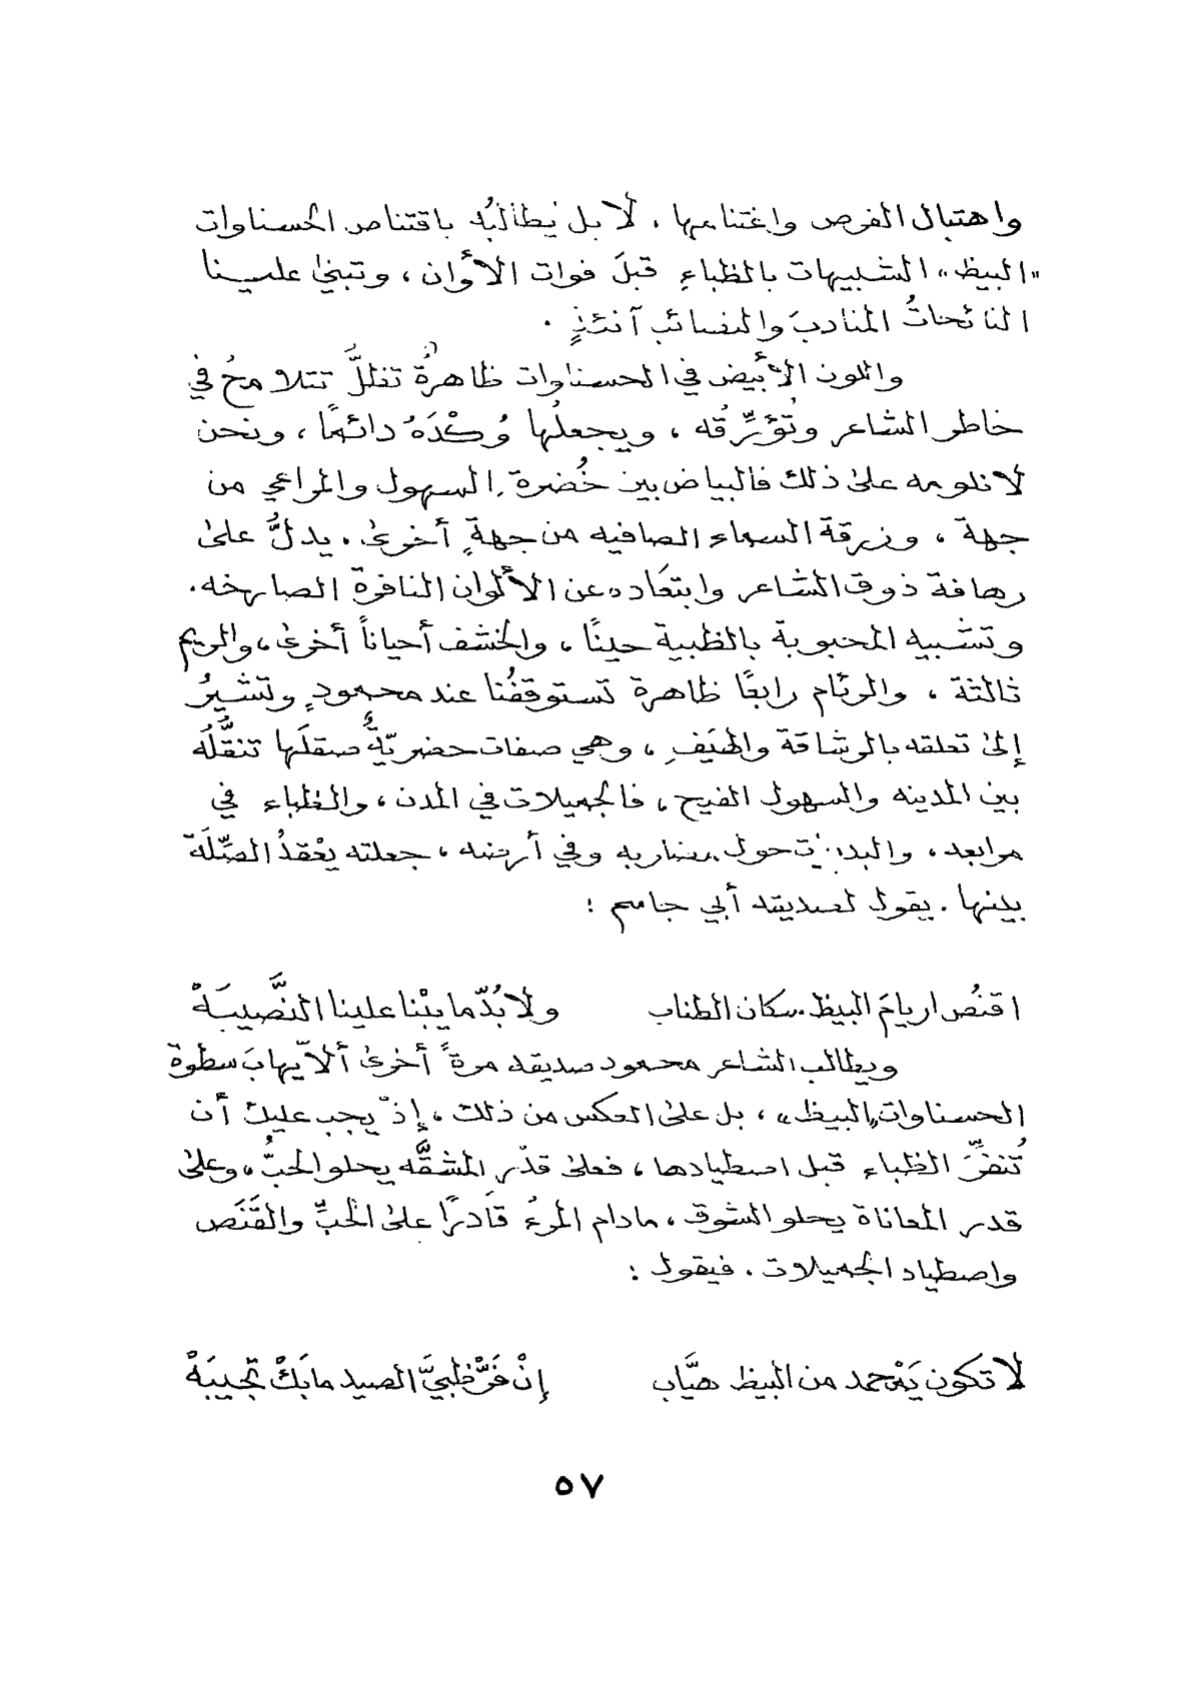 واهتبال الفرص واغتنامها ، لا بل يُطالبُه باقتناص الحسناوات
"البيظ" الشبيهات بالظباءِ قبلَ فوات الأوان ، وتبني علينا
النائحاتُ المنادبَ والنصائب آنئذٍ .
واللون الأبيض في الحسناوات ظاهرةٌ تظلُّ تتلامحُ في
خاطر الشاعر وتُؤرِّقُه ، ويجعلُها وُكْدَهُ دائمًا ، ونحن
لا نلومه على ذلك فالبياض بين خُضرةِ السهول والمراعي من
جهة ، وزرقة السماء الصافيه من جهةٍ أخرى . يدلُّ على
رهافة ذوق الشاعر وابتعَاده عن الألوان النافرة الصارخه .
وتشبيه المحبوبة بالظبية حينًا ، والخشف أحياناً أخرى ، والريم
ثالثة ، والرئام رابعًا ظاهرة تستوقفُنا عند محمودٍ وتشيرُ
إلى تعلقه بالرشاقة والهَيَفِ ، وهي صفات حضريّةٌ صقلَها تنقُّلُه
بين المدينه والسهول الفيح ، فالجميلات في المدن ، والظباء في
مرابعه ، والبدويات حول مضاربه وفي أرضه ، جعلته يعْقدُ الصِّلَةَ
بينها . يقول لصديقه أبي جاسم :
اقنُص اريامَ البيظ سكان الطناب ولا بُدّ ما يبْنا علينا النَّصيبَهْ
ويطالب الشاعر محمود صديقه مرةً أخرى ألاّ يهابَ سطوة
الحسناوات "البيظ" ، بل على العكس من ذلك ، إذْ يجب عليك أن
تُنفِّرَ الظباء قبل اصطيادها ، فعلى قدْر المشقَّه يحلو الحبُّ ، وعلى
قدر المعاناة يحلو الشوق ، مادام المرءُ قَادرًا على الحُبِّ والقَنَص
واصطياد الجميلات . فيقول :
لا تكون يَمْحمد من البيظ هيَّاب إنْ فَرّْ ظبيَّ الصيد ما بَكْ تجيبَهْ
٥٧